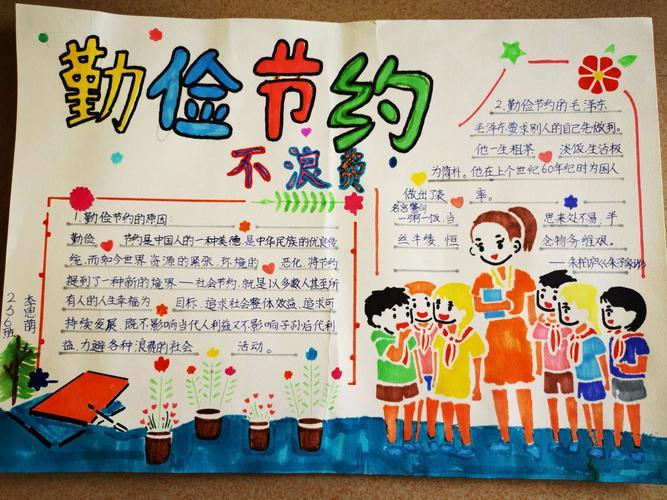 勤俭节约
不浪费
1.勤俭节约的原因:
勤俭 节约是中国人的一种美德,是中华民族的优良传
统,而如今世界 资源的紧张,环境的 恶化,将节约
提到了一种新的境界——社会节约,就是以多数人甚至所
有人的人生幸福为 目标,追求社会整体效益,追求可
持续发展,既不影响当代人利益又不影响子孙后代利
益,力避各种浪费的社会 活动。
2.勤俭节约的毛泽东
毛泽东要求别人的自己先做到。
他一生粗茶 淡饭,生活极
为简朴。他在上个世纪60年纪时为国人
做出了表 率。
名言警句
一粥一饭,当 思来处不易,半
丝半缕,恒 念物务维艰。
——朱柏庐《朱子家训》
236班
李思萌